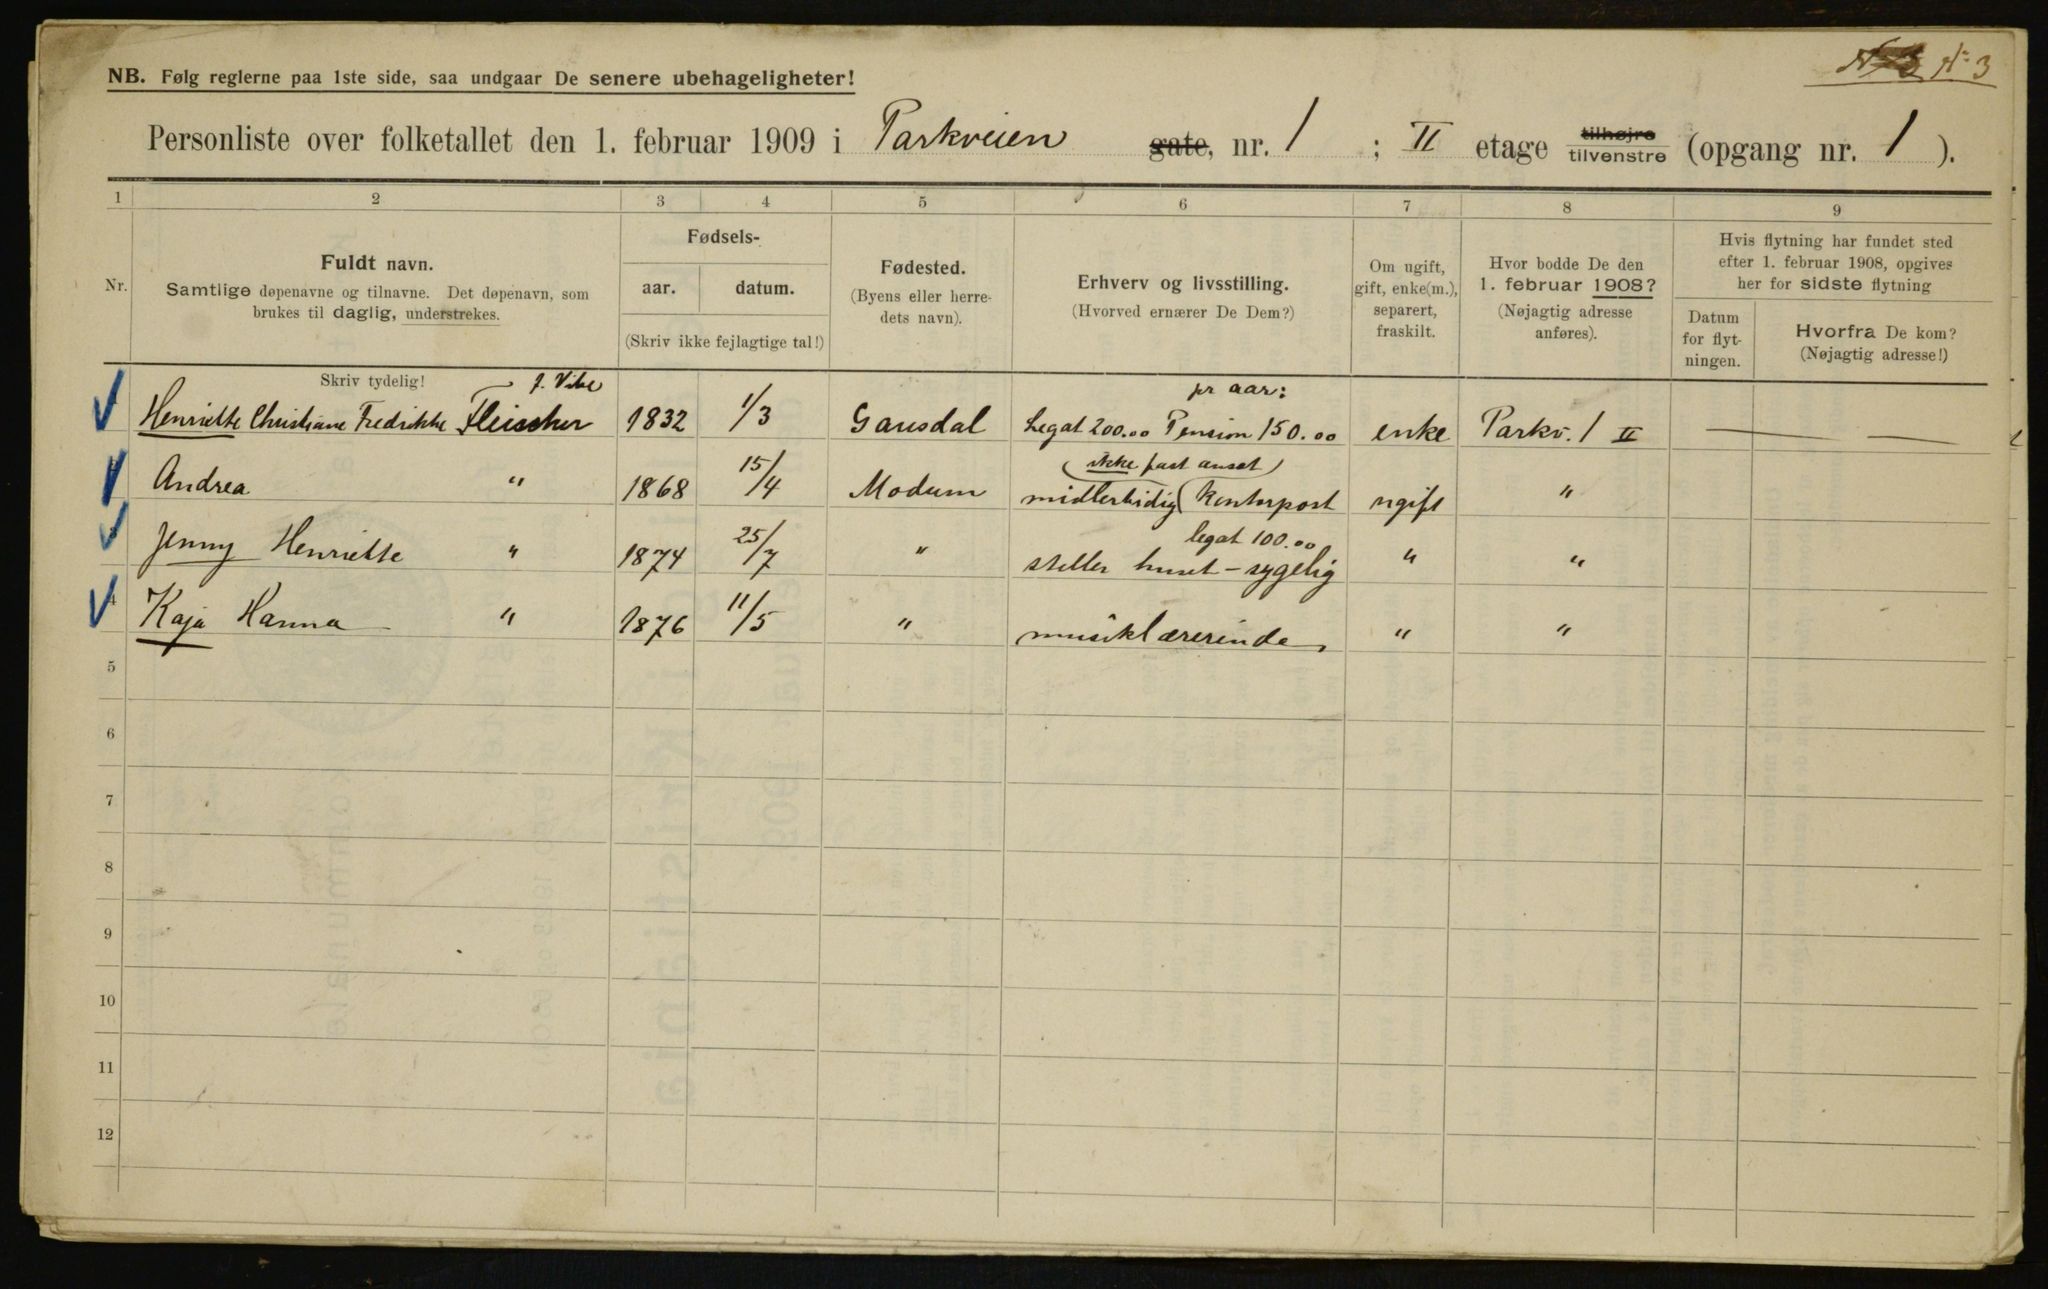 No 3
NB. Følg reglerne paa 1ste side, saa undgaar De senere ubehageligheter!
Personliste over folketallet den 1. februar 1909 i Parkveien gate, nr. 1 ; II etage tilhøjre tilvenstre (opgang nr. 1 ).
1 2 3 4 5 6 7 8 9
Nr.
Fuldt navn.
Samtlige døpenavne og tilnavne. Det døpenavn, som
brukes til daglig, understrekes.
Skriv tydelig!
Fødsels-
aar. datum.
(Skriv ikke fejlagtige tal!)
Fødested.
(Byens eller herre-
dets navn).
Erhverv og livsstilling.
(Hvorved ernærer De Dem?)
Om ugift,
gift, enke(m.),
separert,
fraskilt.
Hvor bodde De den
1. februar 1908?
(Nøjagtig adresse
anføres).
Hvis flytning har fundet sted
efter 1. februar 1908, opgives
her for sidste flytning
Datum
for flyt-
ningen.
Hvorfra De kom?
(Nøjagtig adresse!)
f. Vibe pr aar:
Henriette Christiane Fredrikke Fleischer 1832 1/3 Gausdal Legat 200.00 Pension 150.00 enke Parkv. 1 II — —
(ikke fast ansat)
Andrea " 1868 15/4 Modum midlertidig Kontorpost ugift "
legat 100.00
Jenny Henriette " 1874 25/7 " steller huset - sygelig " "
4 Kaja Hanna " 1876 11/5 " musiklærerinde " "
5
6
7
8
9
10
11
12